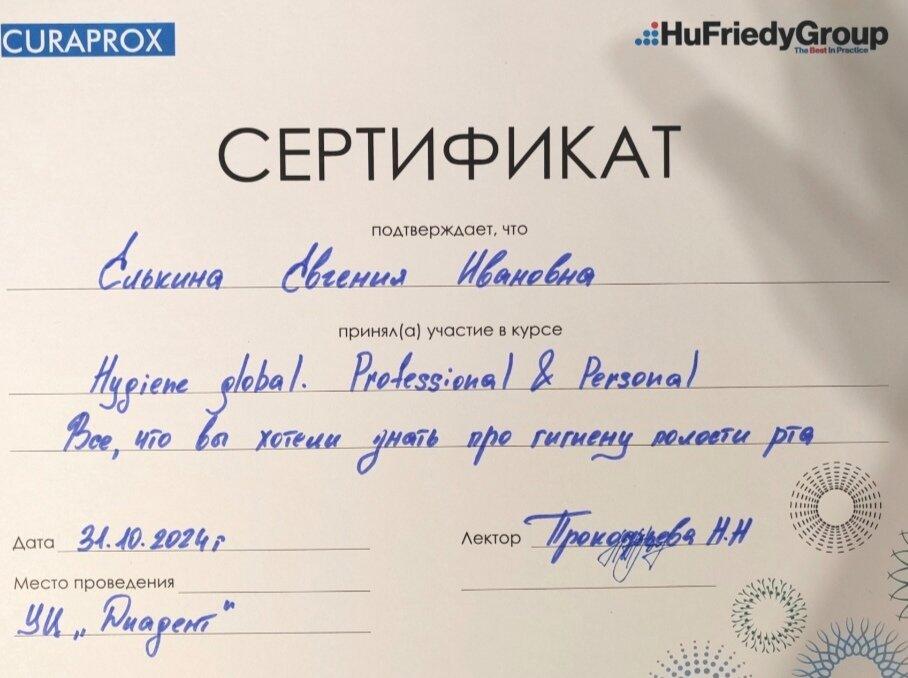 CURAPROX
HuFriedyGroup
The Best In Practice
СЕРТИФИКАТ
подтверждает, что
Елькина Евгения Ивановна
принял(а) участие в курсе
Hygiene global. Professional & Personal
Все, что вы хотели знать про гигиену полости рта
Дата 31.10.2024г
Лектор Прокопьева Н.Н
Место проведения
УЦ „Диадент"